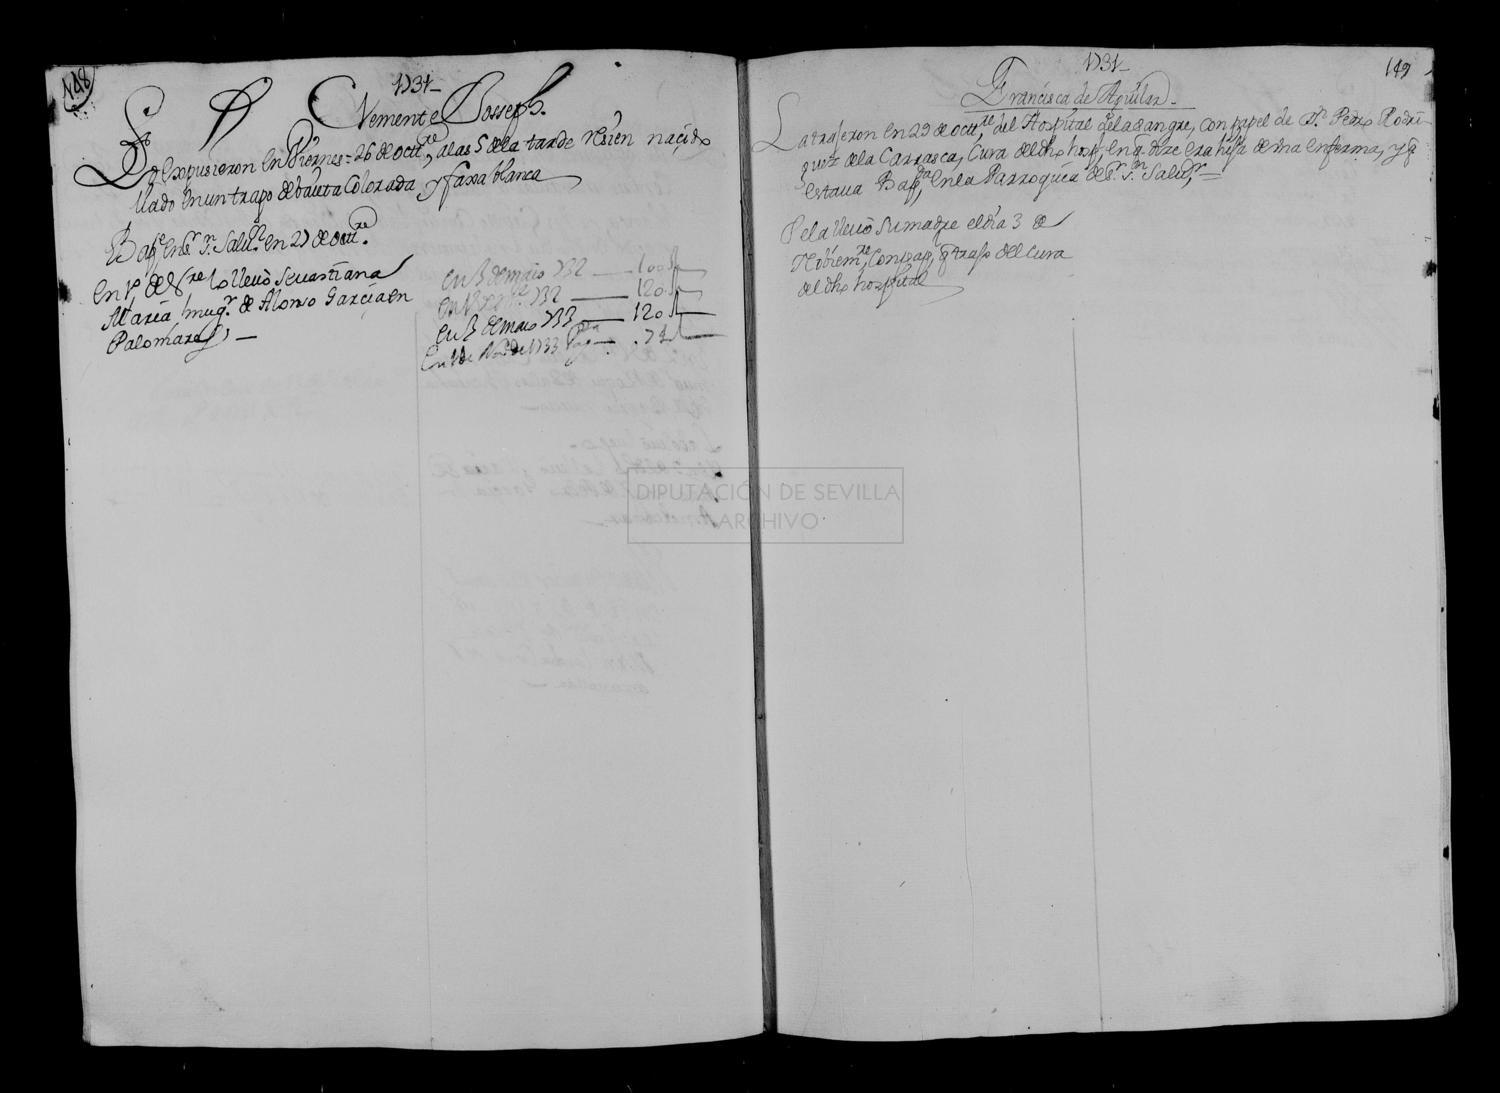 148
1731
Clemente Josseph.
Lo expusieron en Viernes = 26 de octre, a las 5 de la tarde resien naçido
liado en un trapo de bauta Colorada y faxa blanca
Bapº en Sr. Sn. Salvr. en 27 de octre.
en 1º de Nre lo llevó Sevastiana
Maria mugr. de Alonso Garcia en
Palomares —
en 3 de maio 732 — 100
732 — 120
en 3 de maio 733 — 120
en 1 de Nore de 1733 — 74
1731
149
Francisca de Aguilar
La trageron en 29 de octre, del Hospital de la Sangre, con papel de Dn. Pedro Rodri-
guez de la Carrasca, Cura del dho hospl, en q. dize era hija de una enferma, y q
estava Bapda, en la Parroquia de Sr. Sn. Salvr,
Se la llevó su madre el dia 3 de
Nobiemre, con papl q traxo del Cura
del dho hospital
DIPUTACIÓN DE SEVILLA
ARCHIVO